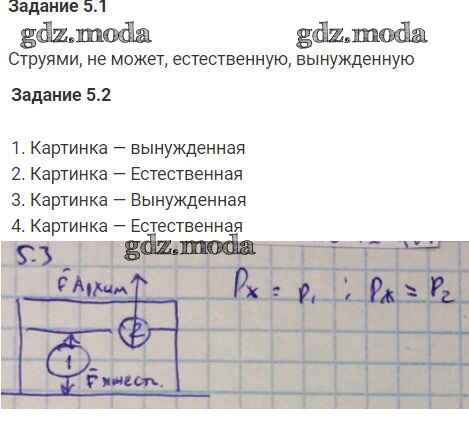 Задание 5.1
gdz.moda gdz.moda
Струями, не может, естественную, вынужденную
Задание 5.2
1. Картинка — вынужденная
2. Картинка — Естественная
3. Картинка — Вынужденная
4. Картинка — Естественная
gdz.moda
5.3
F Архим
Pж = P1 ; Pж = P2
2
1
F тжест.